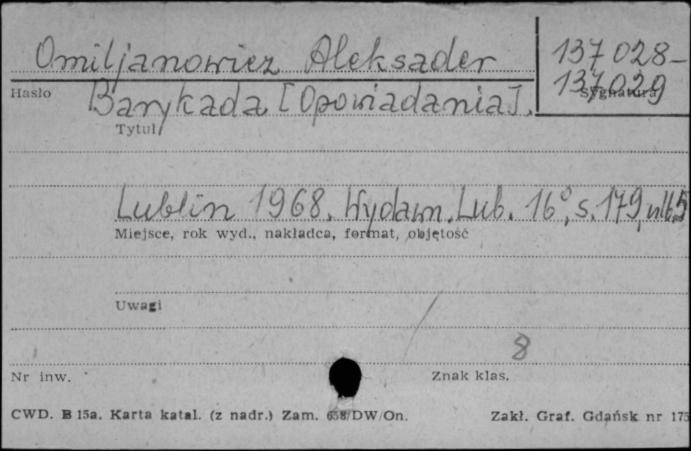 Omiljanowicz Aleksader 137028-
137029
Hasło Barykada [Opowiadania]. Sygnatura
Tytuł
Lublin 1968. Wydawn. Lub. 16°, s. 179, nlb. 5
Miejsce, rok wyd., nakładca, format, objętość
Uwagi
8
Nr inw. Znak klas.
CWD. B 15a. Karta katal. (z nadr.) Zam. 658/DW/On. Zakł. Graf. Gdańsk nr 175